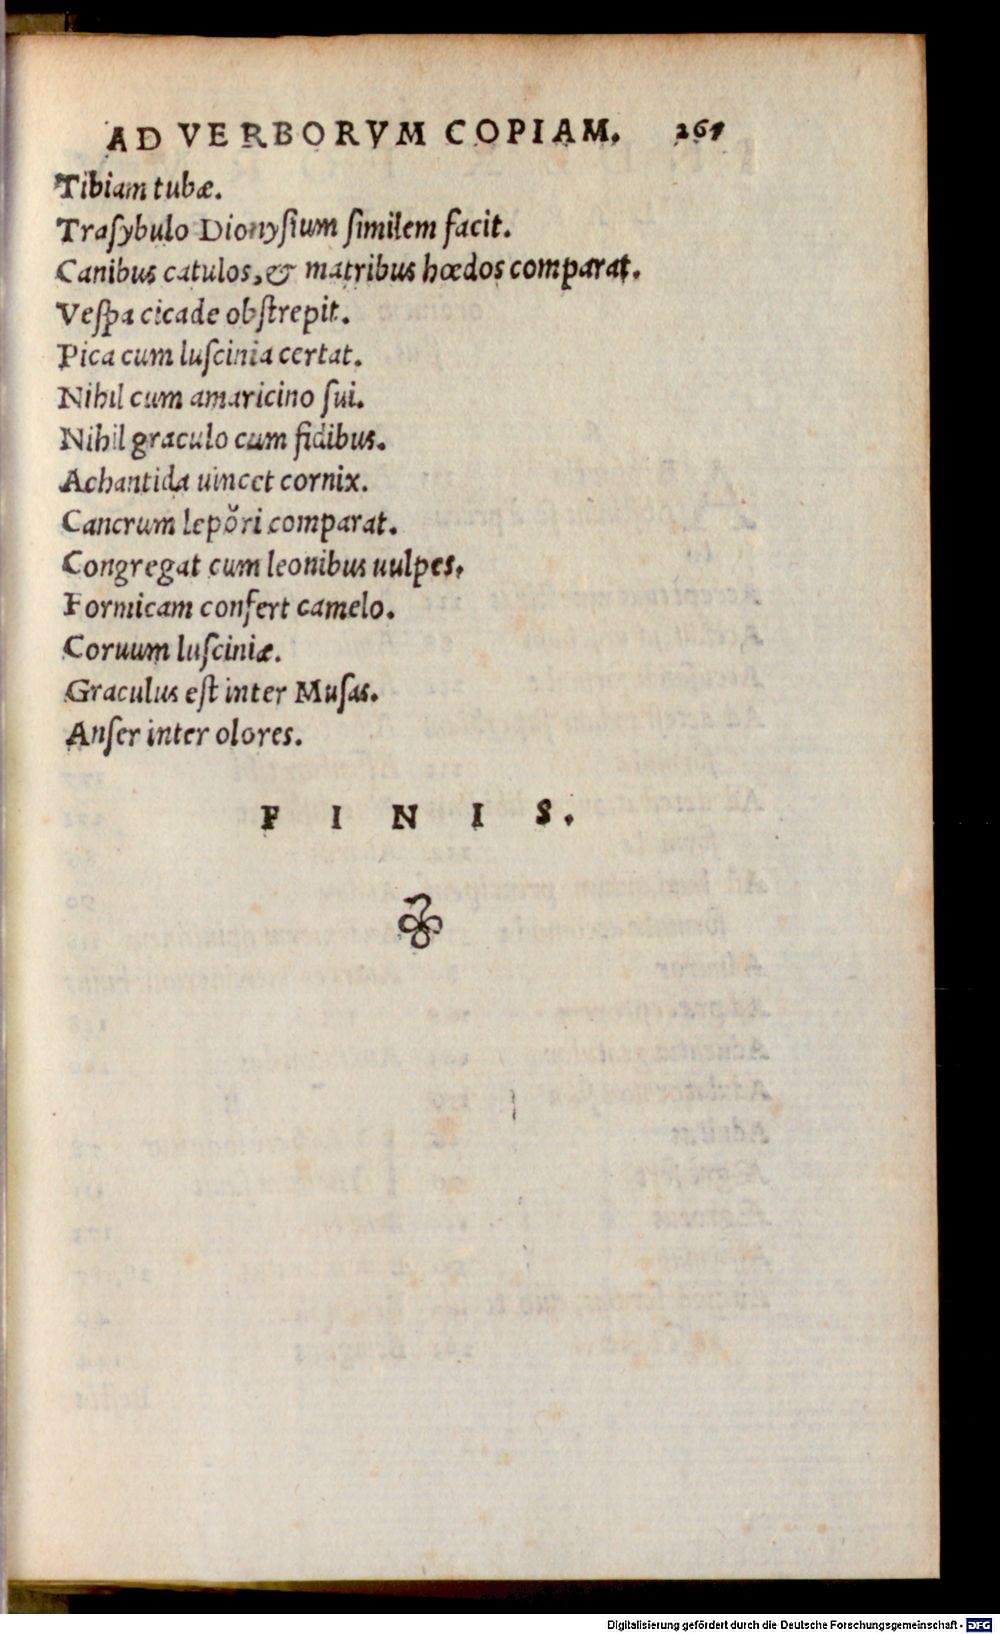 AD VERBORVM COPIAM. 267
Tibiam tubæ.
Traſybulo Dionyſium ſimilem facit.
Canibus catulos, & matribus hœdos comparat.
Veſpa cicade obſtrepit.
Pica cum luſcinia certat.
Nihil cum amaricino ſui.
Nihil graculo cum fidibus.
Achantida uincet cornix.
Cancrum lepŏri comparat.
Congregat cum leonibus uulpes.
Formicam confert camelo.
Coruum luſciniæ.
Graculus eſt inter Muſas.
Anſer inter olores.
F I N I S.
Digitalisierung gefördert durch die Deutsche Forschungsgemeinschaft - DFG